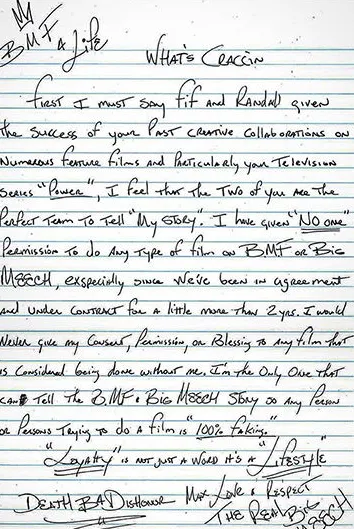 BMF 4 Life
WHAT'S CRACCIN
First I must say Fif and Randall given
the success of your past creative collaborations on
numerous feature films and particularly your television
series "Power", I feel that the two of you are the
perfect team to tell "My Story". I have given "No one"
permission to do any type of film on BMF or Big
Meech, exspecially since we've been in agreement
and under contract for a little more than 2 yrs. I would
never give my consent, permission, or blessing to any film that
is considered being done without me. I'm the only one that
can tell the BMF & Big Meech story so any person
or persons trying to do a film is "100% faking."
"Loyalty" is not just a word it's a "Lifestyle"
Death B4 Dishonor Max Love & Respect
The Real Big
Meech